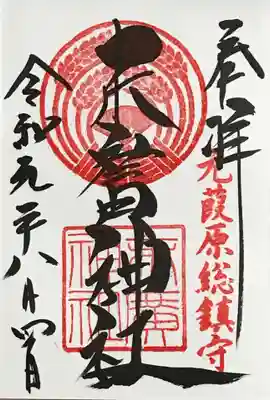 奉拝
元葭原総鎮守
末廣神社
令和元年八月四日